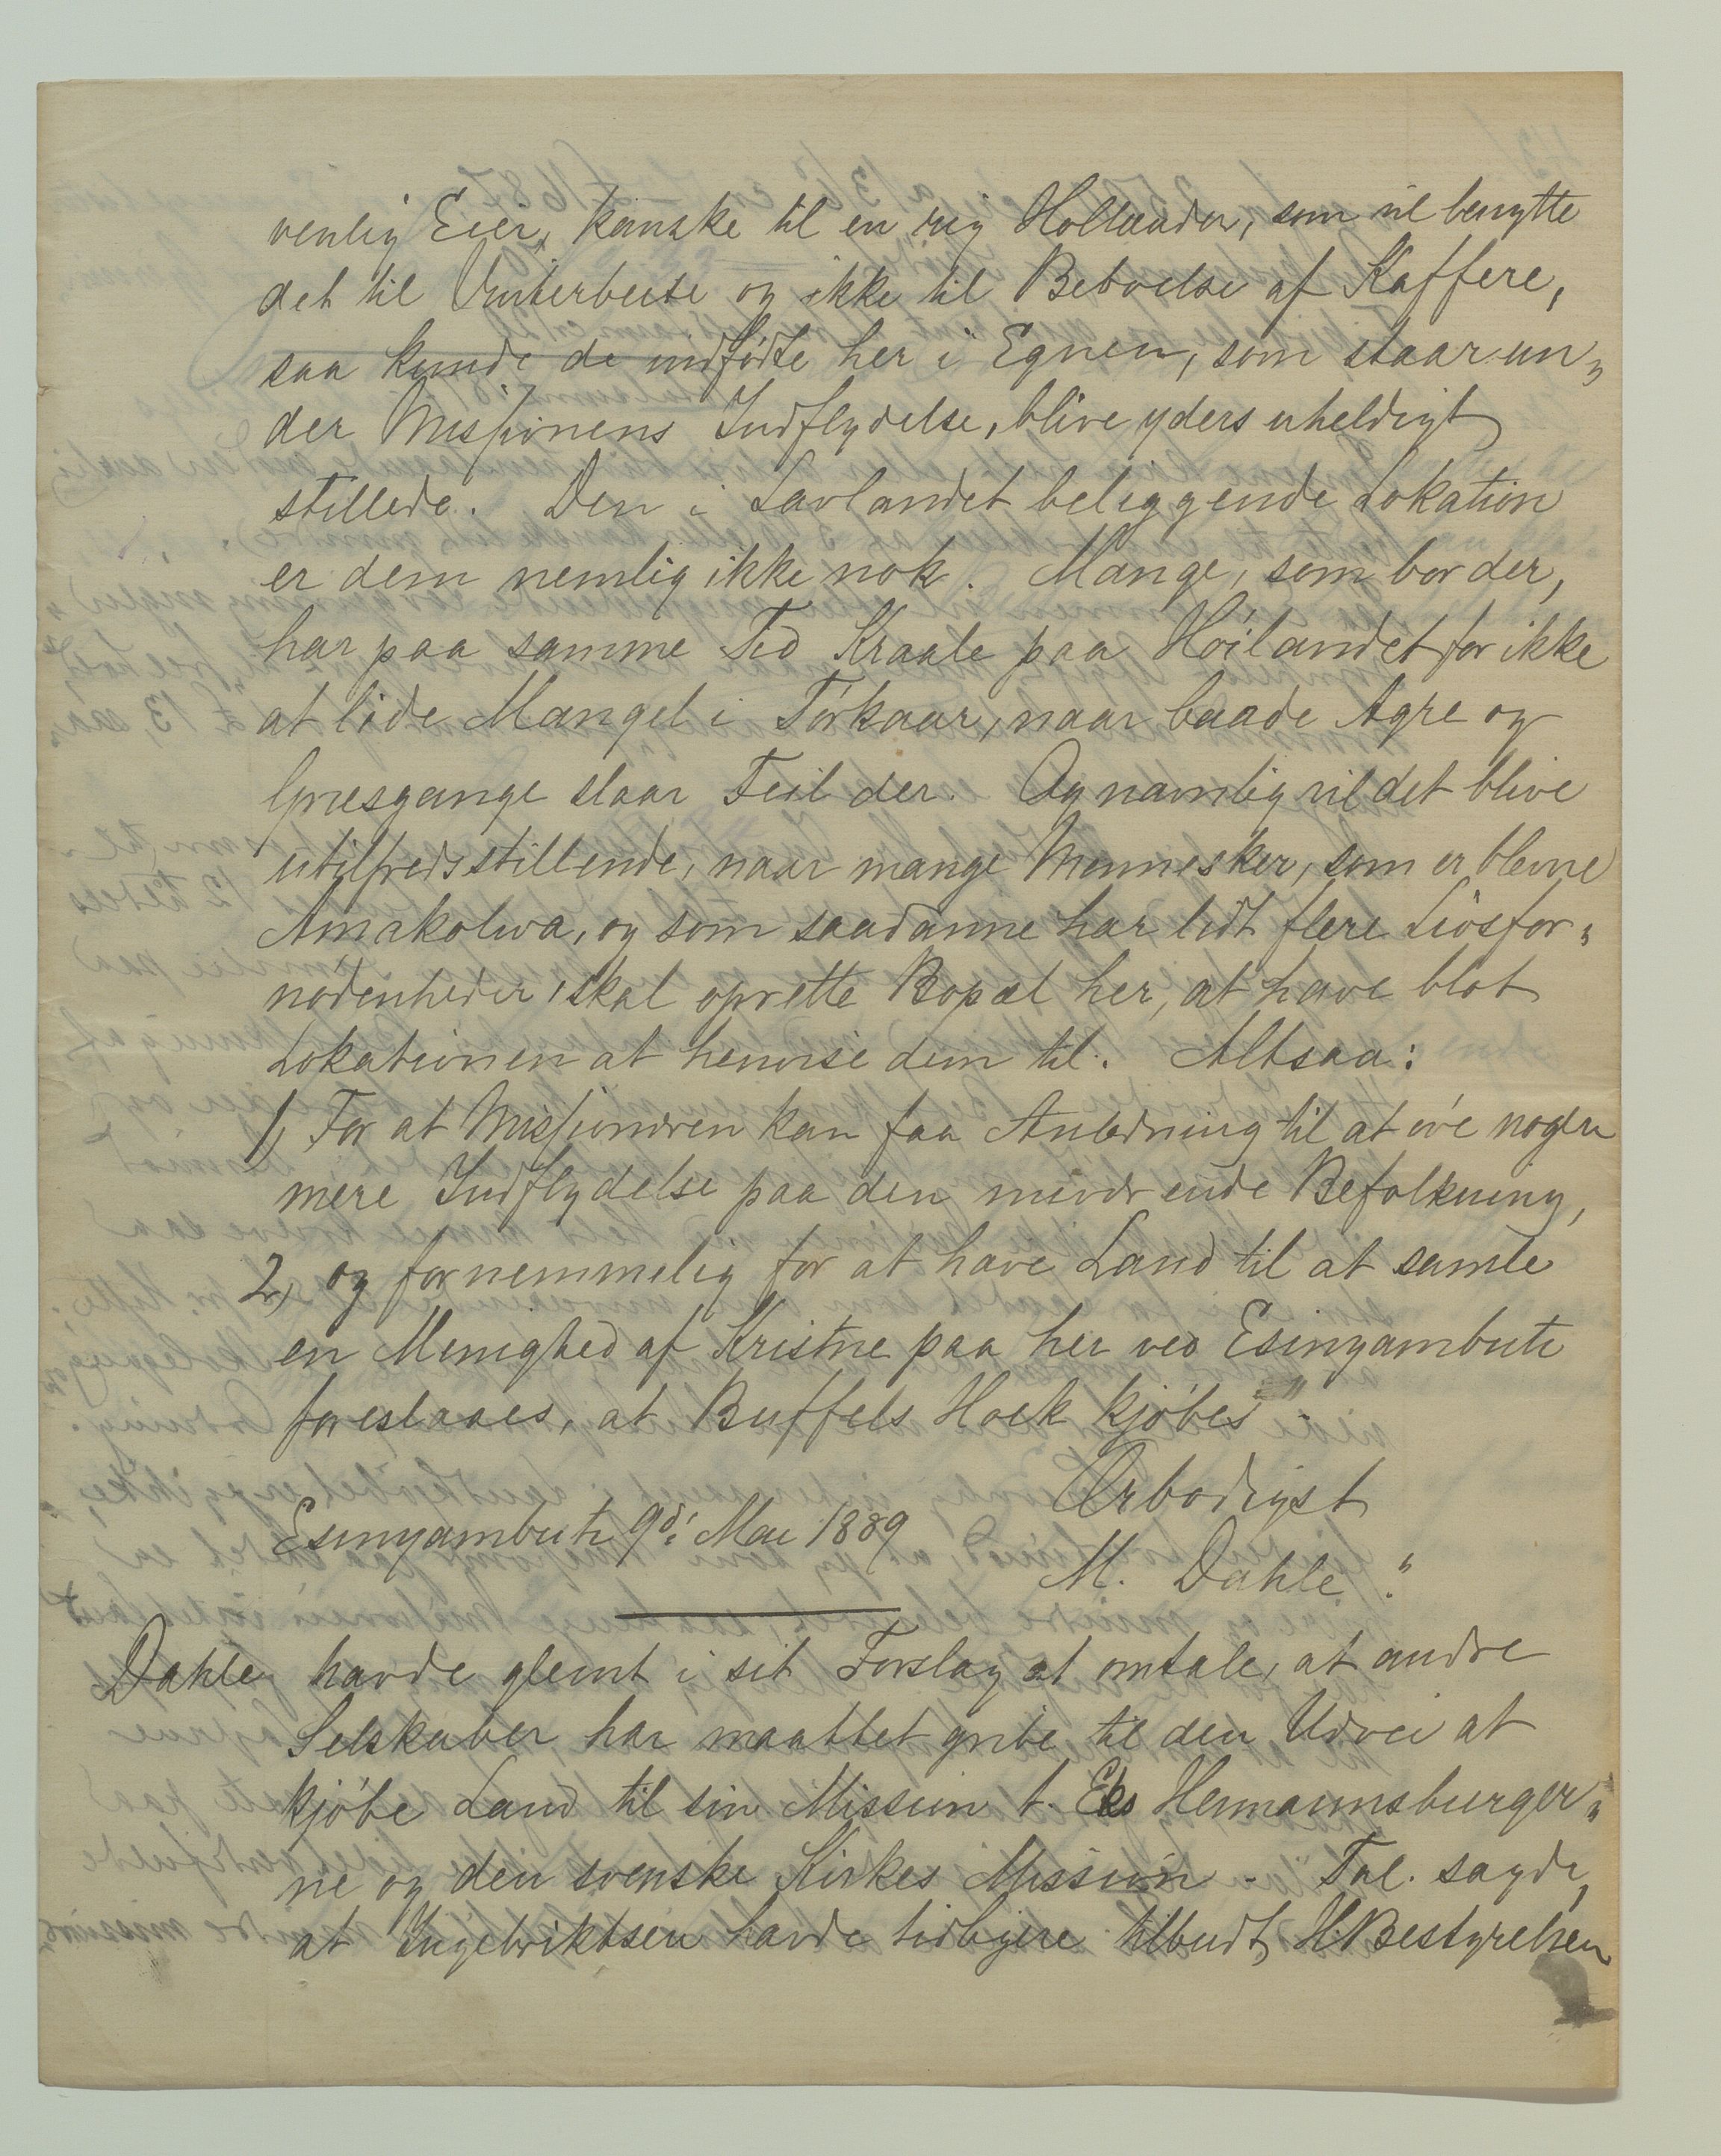 venlig Eier, kanske til en rig Hollænder, som vil benytte
det til Vinterbeite og ikke til Beboelse af Kaffere,
saa kunde de indfødte her i Egnen, som staar un„
der Missionens Indflydelse, blive yders uheldigt
stillede. Den i Lavlandet beliggende Lokation
er dem nemlig ikke nok. Mange, som bor der,
har paa samme Tid Kraale paa Høilandet for ikke
at lide Mangel i Tørkaar, naar baade Agre og
Græsgange slaar Feil der. Og navnlig vil det blive
utilfredsstillende, naar mange Mennesker, som er blevne
Amakolwa, og som saadanne har lidt flere Livsfor„
nødenheder, skal oprette Bopæl her, at have blot
Lokationen at henvise dem til. Altsaa:
1, For at Missionæren kan faa Anledning til at øve nogen
mere Indflydelse paa den nuværende Befolkning,
2, og fornemmelig for at have Land til at samle
en Menighed af Kristne paa her ved Esinyambuti
foreslaaes, at Buffels Hoek kjøbes".
Ærbødigst
Esinyambuti 9d: Mai 1889
M. Dahle."
Dahle havde glemt i sit Forslag at omtale, at andre
Selskaber har maattet gribe til den Udvei at
kjøbe Land til sin Mission t. Eks Hermannsburger„
ne og den svenske Kirkes Mission. Tal. sagde,
at Ingebriktsen havde tidligere tilbudt H.Bestyrelsen